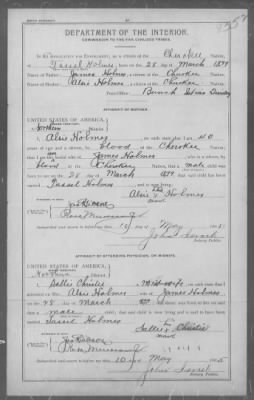 DEPARTMENT OF THE INTERIOR.
COMMISSION TO THE FIVE CIVILIZED TRIBES.
In Re Application for Enrollment, as a citizen of the Cherokee Nation,
of Tassel Holmes, born on the 28 day of March 1899
Name of Father: James Holmes a citizen of the Cherokee Nation.
Name of Mother: Alsie Holmes a citizen of the Cherokee Nation.
Post-office Bunch Indian Territory
AFFIDAVIT OF MOTHER.
UNITED STATES OF AMERICA,
Northern District
I, Alsie Holmes, on oath state that I am 40
years of age and a citizen, by blood of the Cherokee Nation;
that I am the lawful wife of James Holmes, who is a citizen, by
blood of the Cherokee Nation; that a male child was
born to me on the 28 day of March 1899; that said child has been named
Tassel Holmes, and is now living.
Alsie x Holmes
mark
Subscribed and sworn to before me this 10 day of May 1905
Notary Public.
AFFIDAVIT OF ATTENDING PHYSICIAN, OR MIDWIFE.
UNITED STATES OF AMERICA,
Northern District
I, Sallie Christie, a Mid-wife, on oath state that I
attended on Mrs. Alsie Holmes, wife of James Holmes
on the 28 day of March; that there was born to her on said
date a male child; that said child is now living and is said to have been named
Tassel Holmes
Sallie x Christie
mark
Subscribed and sworn to before me this 10 day of May 1905
Notary Public.